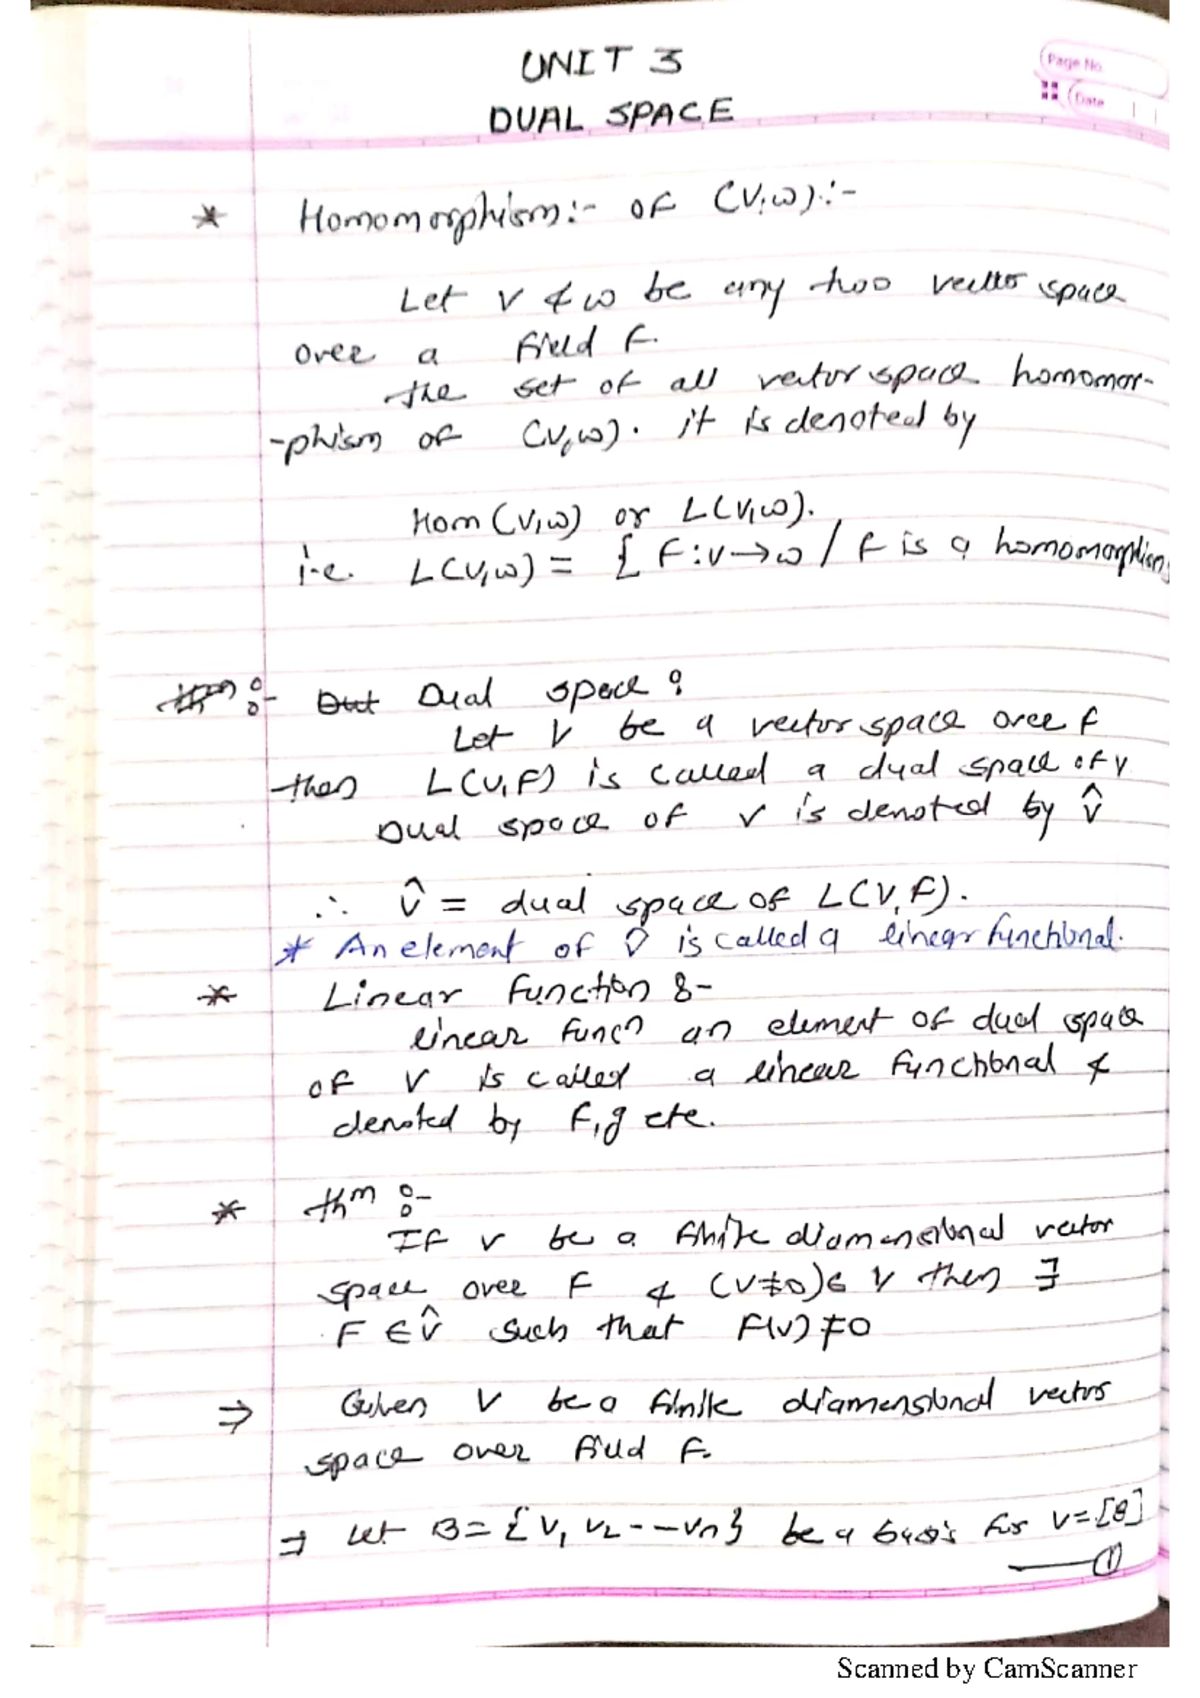 UNIT 3
DUAL SPACE
Page No.
Date
* Homomorphism:- of (V,W):-
Let V & W be any two vector space
over a field F.
the set of all vector space homomor-
-phism of (V,W). it is denoted by
Hom (V,W) or L(V,W).
i.e. L(V,W) = { F:V→W / f is a homomorphism
thm :- Dut Dual space :
Let V be a vector space over F
then L(V,F) is called a dual space of V
Dual space of V is denoted by V̂
∴ V̂ = dual space of L(V,F).
* An element of V̂ is called a linear functional.
* Linear Function :-
linear funcn an element of dual space
of V is called a linear functional &
denoted by F,g etc.
* thm :-
If V be a finite diamensional vector
space over F & (V≠0)∈ V then ∃
F ∈ V̂ such that F(V) ≠0
⇒ Given V be a finite diamensional vector
space over field F.
⇒ Let B = {V1 V2 --- Vn} be a basis for V = [B]
—— ①
Scanned by CamScanner